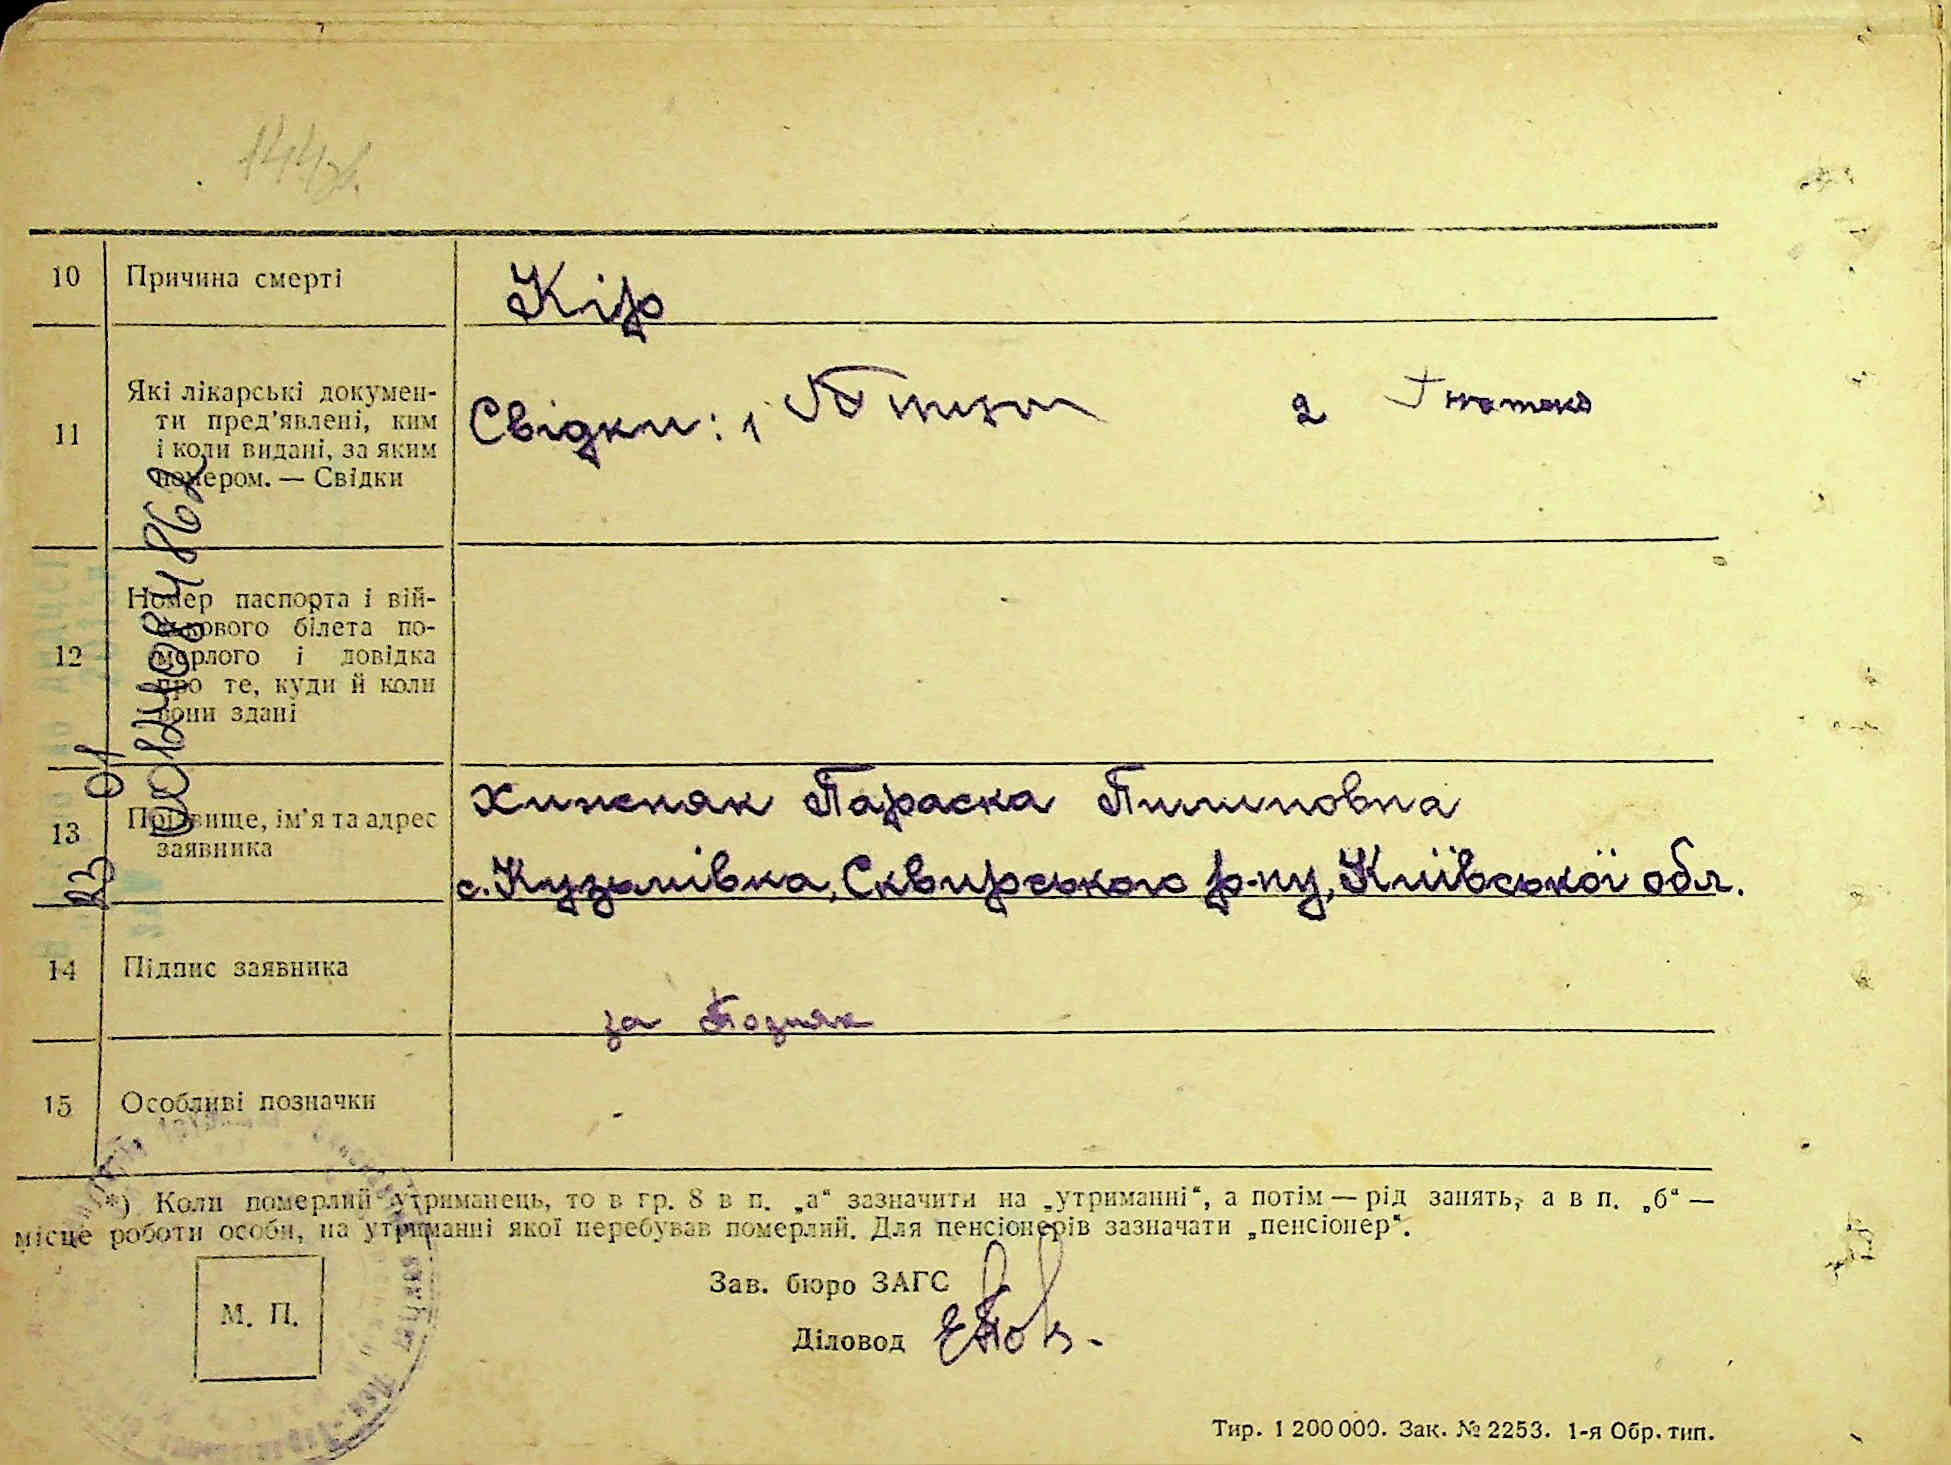 144
10 Причина смерті Кір
11 Які лікарські докумен-
ти пред'явлені, ким
і коли видані, за яким
номером. — Свідки
Свідки: 1 2 Гнатенко
12 Номер паспорта і вій-
ськового білета по-
мерлого і довідка
про те, куди й коли
вони здані
13 Прізвище, ім'я та адрес
заявника
Хижняк Параска Пилиповна
с. Кузьмівка, Сквирського р-ну, Київської обл.
14 Підпис заявника
за Позняк
15 Особливі позначки
*) Коли померлий утриманець, то в гр. 8 в п. „а“ зазначити на „утриманні“, а потім — рід занять, а в п. „б“ —
місце роботи особи, на утриманні якої перебував померлий. Для пенсіонерів зазначати „пенсіонер“.
М. П.
Зав. бюро ЗАГС
Діловод
Тир. 1 200 000. Зак. № 2253. 1-я Обр. тип.